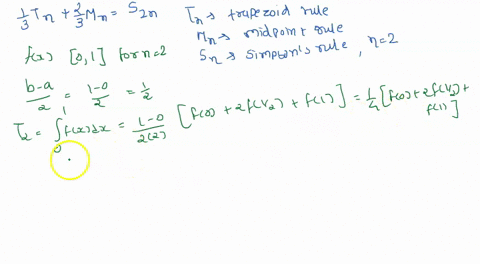 1/3 Tn + 2/3 Mn = S2n
Tn → trapezoid rule
Mn → midpoint rule
Sn → simpson's rule, n=2
f(x) [0,1] for n=2
b-a/2 = 1-0/2 = 1/2
T2 = ∫₀¹ f(x)dx = 1-0/2(2) [f(0) + 2f(1/2) + f(1)] = 1/4 [f(0) + 2f(1/2) +
f(1)]